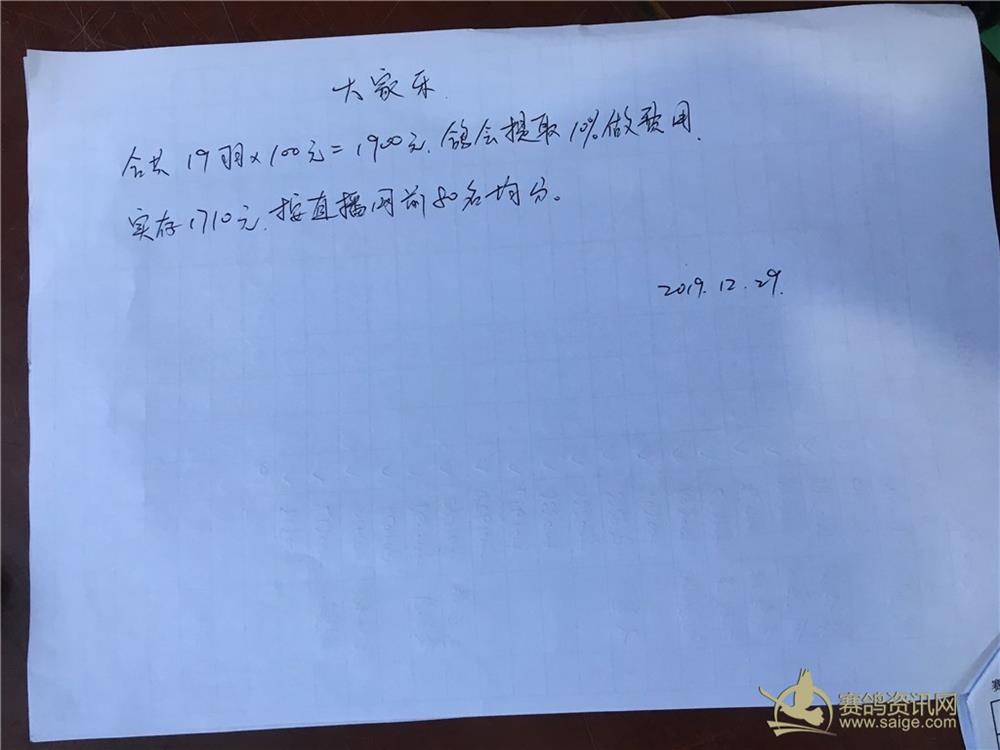 大家乐
合共19羽×100元=1900元.鸽会提取10%做费用.
实存1710元.按直播网前80名均分。
2019.12.29.
赛鸽资讯网
www.saige.com